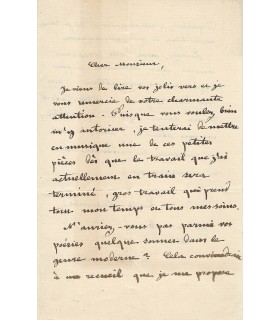 Cher Monsieur,
Je viens de lire vos jolis vers et je
vous remercie de votre charmante
attention. Puisque vous voulez bien
m'y autoriser, je tenterai de mettre
en musique une de ces petites
pièces dès que le travail que j'ai
actuellement en train sera
terminé, gros travail qui prend
tout mon temps ou tous mes soins.
N'auriez-vous pas parmi vos
poésies quelque sonnet dans le
genre moderne? Cela conviendrait
à un recueil que je me propose